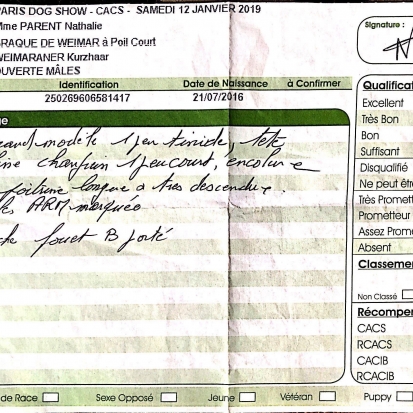 PARIS DOG SHOW - CACS - SAMEDI 12 JANVIER 2019
Mme PARENT Nathalie
BRAQUE DE WEIMAR à Poil Court
WEIMARANER Kurzhaar
OUVERTE MÂLES
Identification Date de Naissance à Confirmer
250269606581417 21/07/2016
grand modèle 1 peu timide, tête
fine chanfrein 1 peu court, encolure
poitrine longue & très descendue.
ARM marquée
fouet B porté
de Race Sexe Opposé Jeune Vétéran Puppy
Signature :
Qualificat
Excellent
Très Bon
Bon
Suffisant
Disqualifié
Ne peut êtr
Très Promett
Prometteur
Assez Prome
Absent
Classemer
Non Classé
Récomper
CACS
RCACS
CACIB
RCACIB